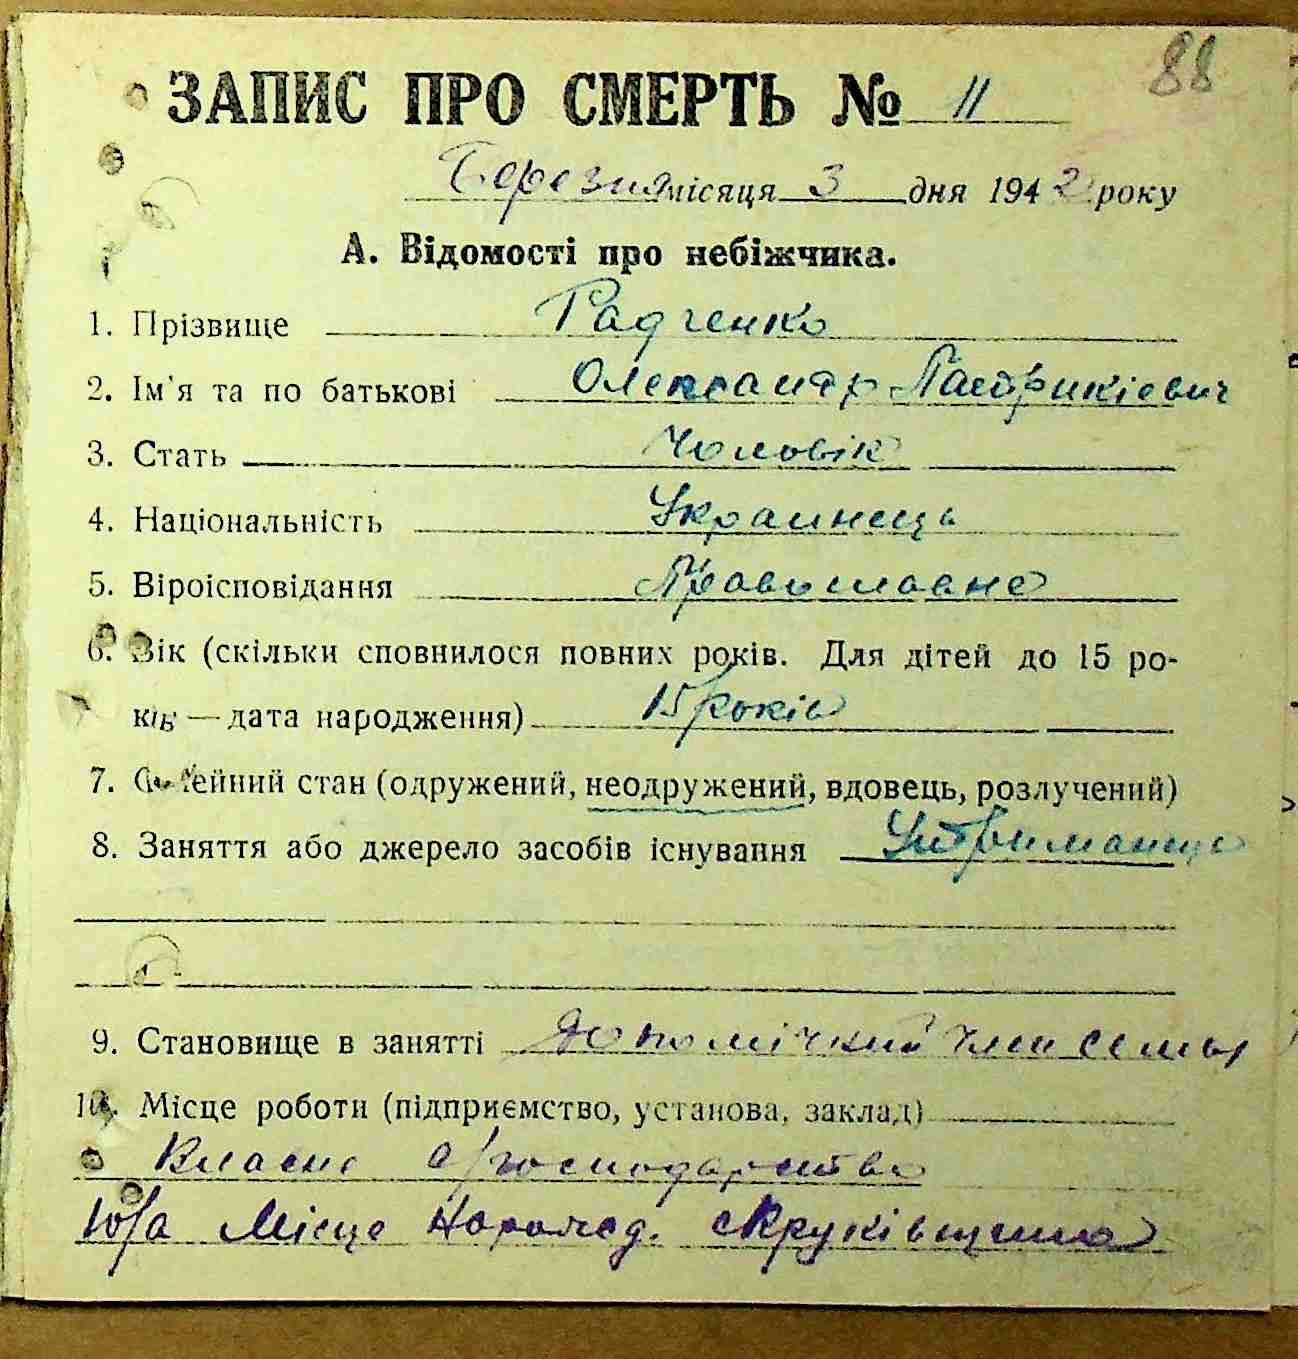 88
ЗАПИС ПРО СМЕРТЬ № 11
Березня місяця 3 дня 1942 року
А. Відомості про небіжчика.
1. Прізвище Радченко
2. Ім'я та по батькові Олександр Патрикієвич
3. Стать Чоловік
4. Національність Украинець
5. Віроісповідання Православне
6. Вік (скільки сповнилося повних років. Для дітей до 15 ро-
ків — дата народження) 15 років
7. Сімейний стан (одружений, неодружений, вдовець, розлучений)
8. Заняття або джерело засобів існування Утриманець
9. Становище в занятті Допомічний член семьи
10. Місце роботи (підприємство, установа, заклад)
Власне с/господарство
10/а Місце народ. с Круківщина